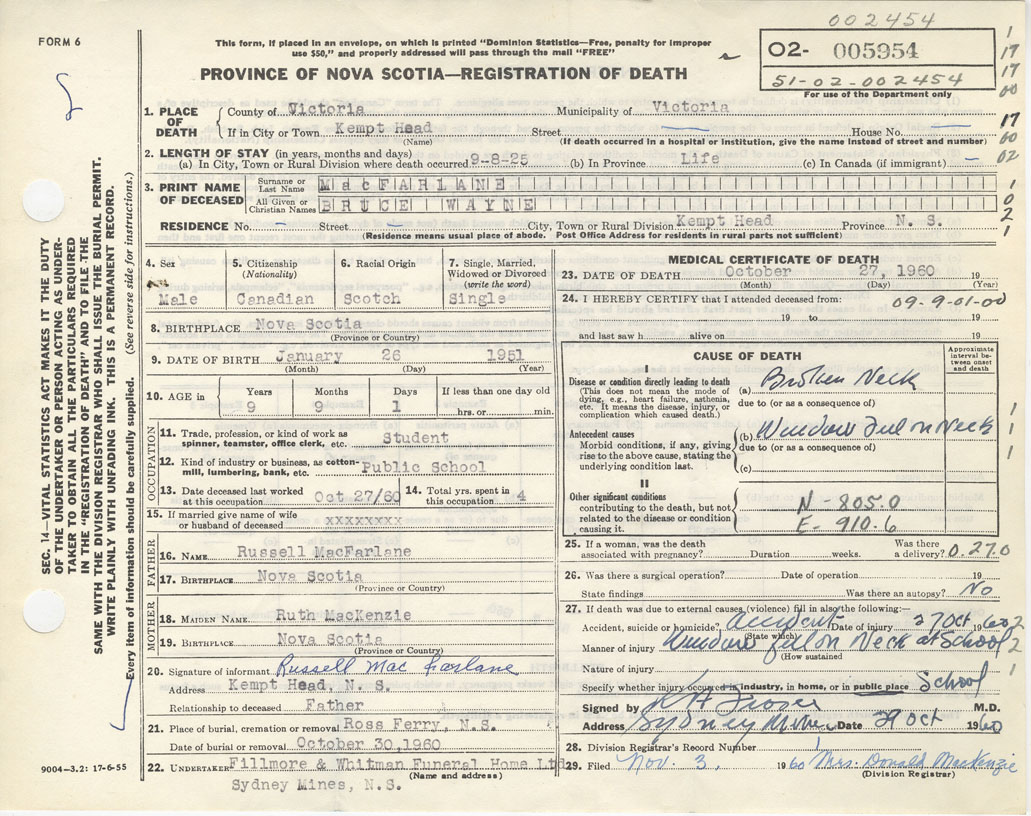 002454
FORM 6
This form, if placed in an envelope, on which is printed "Dominion Statistics—Free, penalty for improper
use $50," and properly addressed will pass through the mail "FREE"
02- 005954
51-02-002454
For use of the Department only
PROVINCE OF NOVA SCOTIA—REGISTRATION OF DEATH
1. PLACE OF DEATH { County of Victoria Municipality of Victoria
If in City or Town Kempt Head Street — House No. —
(Name) (If death occurred in a hospital or institution, give the name instead of street and number)
2. LENGTH OF STAY (in years, months and days)
(a) In City, Town or Rural Division where death occurred 9-8-25 (b) In Province Life (c) In Canada (if immigrant) —
3. PRINT NAME OF DECEASED { Surname or Last Name MacFARLANE
All Given or Christian Names BRUCE WAYNE
RESIDENCE No. - Street - City, Town or Rural Division Kempt Head Province N. S.
(Residence means usual place of abode. Post Office Address for residents in rural parts not sufficient)
1
17
17
00
17
60
02
1
0
2
1
SEC. 14—VITAL STATISTICS ACT MAKES IT THE DUTY
OF THE UNDERTAKER OR PERSON ACTING AS UNDER-
TAKER TO OBTAIN ALL THE PARTICULARS REQUIRED
IN THE "REGISTRATION OF DEATH" AND TO FILE THE
SAME WITH THE DIVISION REGISTRAR WHO SHALL ISSUE THE BURIAL PERMIT.
WRITE PLAINLY WITH UNFADING INK. THIS IS A PERMANENT RECORD.
Every item of information should be carefully supplied. (See reverse side for instructions.)
4. Sex 5. Citizenship 6. Racial Origin 7. Single, Married,
(Nationality) Widowed or Divorced
(write the word)
Male Canadian Scotch Single
8. BIRTHPLACE Nova Scotia
(Province or Country)
9. DATE OF BIRTH January 26 1951
(Month) (Day) (Year)
10. AGE in { Years Months Days If less than one day old
9 9 1 hrs. or min.
OCCUPATION
11. Trade, profession, or kind of work as
spinner, teamster, office clerk, etc. Student
12. Kind of industry or business, as cotton-
mill, lumbering, bank, etc. Public School
13. Date deceased last worked
at this occupation Oct 27/60 14. Total yrs. spent in
this occupation 4
15. If married give name of wife
or husband of deceased xxxxxxxx
FATHER
16. NAME Russell MacFarlane
17. BIRTHPLACE Nova Scotia
(Province or Country)
MOTHER
18. MAIDEN NAME Ruth MacKenzie
19. BIRTHPLACE Nova Scotia
(Province or Country)
20. Signature of informant Russell Mac Farlane
Address Kempt Head, N. S.
Relationship to deceased Father
21. Place of burial, cremation or removal Ross Ferry, N.S.
Date of burial or removal October 30,1960
22. UNDERTAKER Fillmore & Whitman Funeral Home Ltd
(Name and address)
Sydney Mines, N.S.
9004—3.2: 17-6-55
MEDICAL CERTIFICATE OF DEATH
23. DATE OF DEATH October 27, 1960 19
(Month) (Day) (Year)
24. I HEREBY CERTIFY that I attended deceased from: 09-9-01-00
19 to 19
and last saw h alive on 19
CAUSE OF DEATH
Approximate interval between onset and death
I
Disease or condition directly leading to death
(This does not mean the mode of dying, e.g., heart failure, asthenia, etc. It means the disease, injury, or complication which caused death.)
(a) Broken Neck
due to (or as a consequence of)
Antecedent causes
Morbid conditions, if any, giving rise to the above cause, stating the underlying condition last.
(b) Window Fell on Neck
due to (or as a consequence of)
(c)
II
Other significant conditions
contributing to the death, but not related to the disease or condition causing it.
N - 805.0
E - 910.6
1
1
1
25. If a woman, was the death
associated with pregnancy? Duration weeks. Was there
a delivery? 0.27.0
26. Was there a surgical operation? Date of operation 19
State findings Was there an autopsy? No
27. If death was due to external causes (violence) fill in also the following:—
Accident, suicide or homicide? accident Date of injury 27 Oct 1960
(State which)
Manner of injury Window fell on Neck at School
(How sustained
Nature of injury
Specify whether injury occurred in industry, in home, or in public place School
2
2
1
Signed by M.D.
Address Sydney Mines Date 29 Oct 1960
28. Division Registrar's Record Number 1
29. Filed Nov. 3, 1960 Mrs. Donald MacKenzie
(Division Registrar)